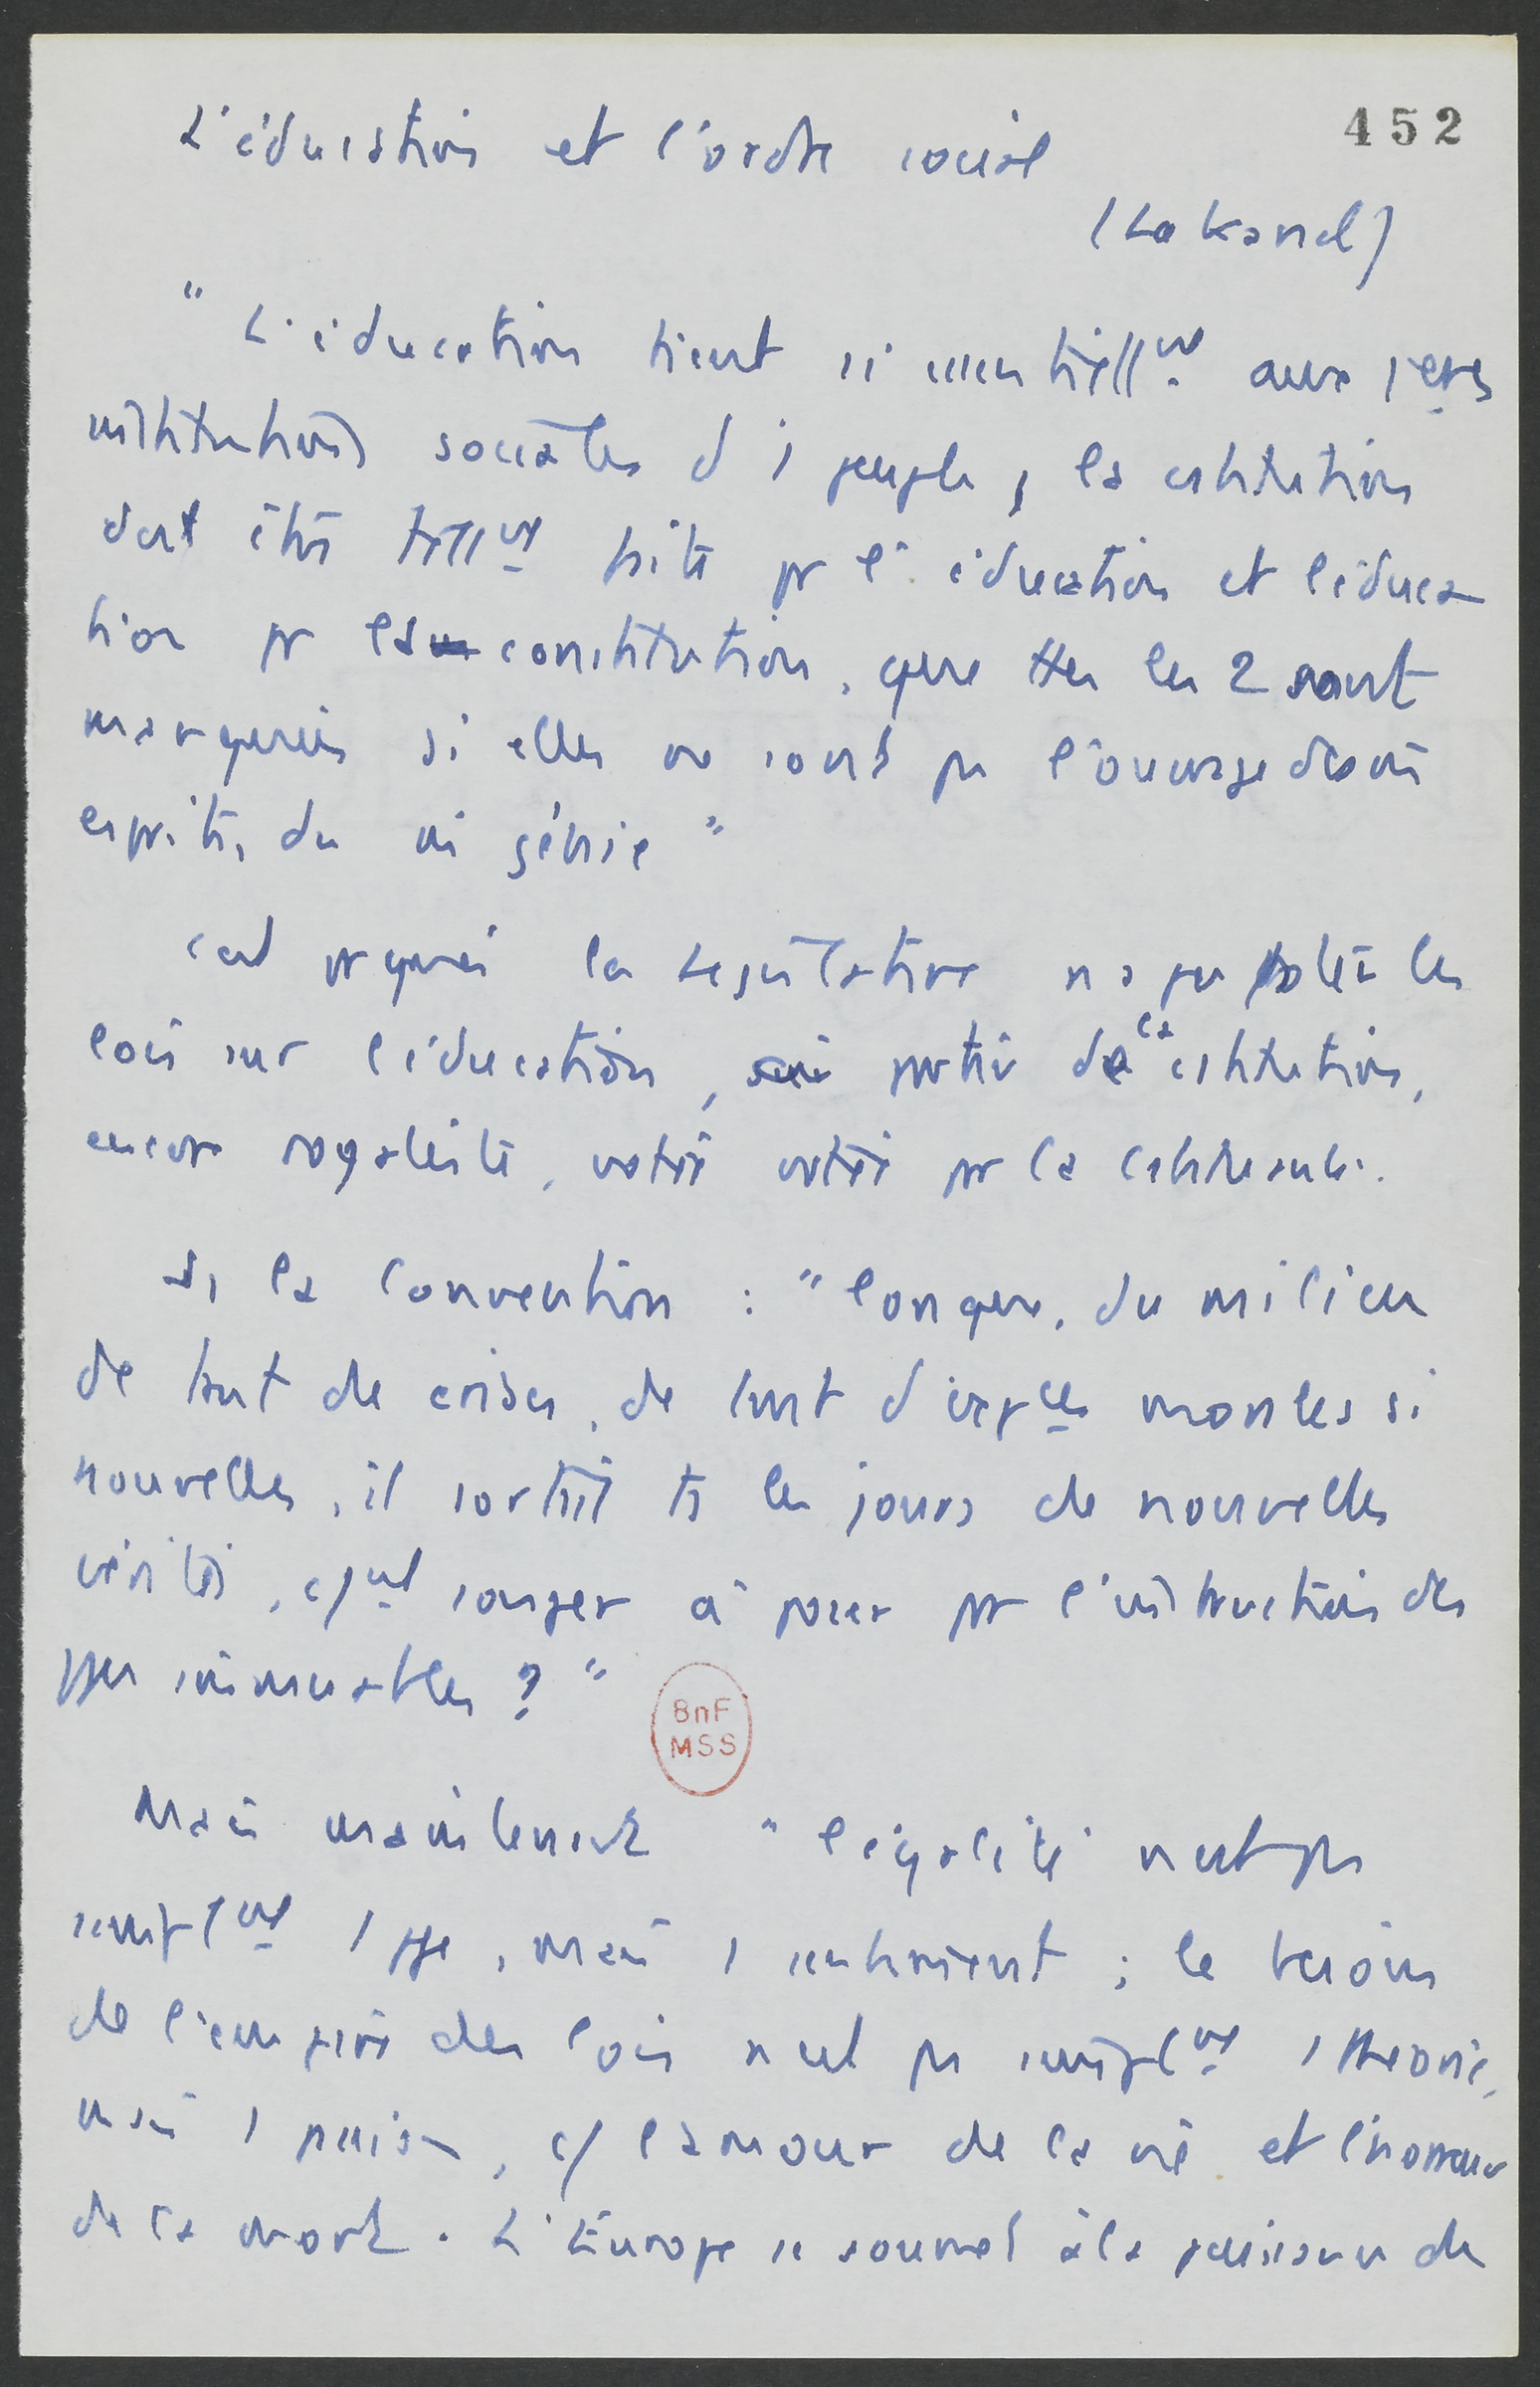 452
L'éducation et l'ordre social
(Lakanal)
"L'éducation tient si essentiellmt aux 1eres
institutions sociales d 1 peuple, la cstitution
doit être tellmt faite pr l'éducation et l'éduca
tion pr la constitution, que ttes les 2 sont
manquées si elles ne sont pas l'ouvrage du m
esprit, du m génie"
C'est pr quoi la Législative n'a pu voter les
lois sur l'éducation, à partir de la cstitution,
encore royaliste, votée par la Cstituante.
Ds la Convention : "lorsque, du milieu
de tant de crises, de tant d'expces morales si
nouvelles, il sortait ts les jours de nouvelles
vérités, c/mt songer à poser pr l'instruction des
ppes immuables ?"
BnF
MSS
Mais maintenant "l'égalité n'est pas
simplmt 1 ppe, mais 1 sentiment ; le besoin
de l'empire des lois n'est pas simplmt 1 théorie,
mais 1 passion, c/ l'amour de la vie et l'horreur
de la mort. L'Europe se soumet à la puissance de